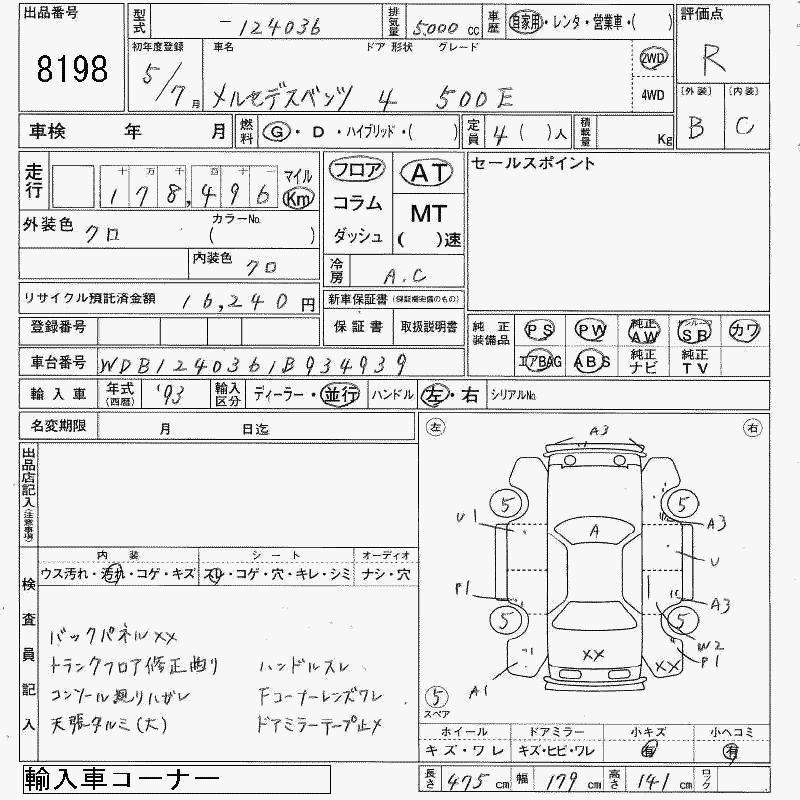 出品番号 8198
型式 - 124036
排気量 5,000 cc
車歴 自家用・レンタ・営業車・( )
評価点 R
初年度登録 5/7月
車名 メルセデスベンツ
ドア 形状 4
グレード 500E
2WD
4WD
[外装] B
[内装] C
車検 年 月
燃料 G・D・ハイブリッド・( )
定員 4 ( ) 人
積載量 Kg
走行 十万千百十一
178,496 マイル Km
フロア
コラム
ダッシュ
AT
MT
( )速
セールスポイント
外装色 クロ
カラーNo.
( )
内装色 クロ
冷房 A.C
リサイクル預託済金額 16,240 円
新車保証書 (保証欄完備のもの)
保証書 取扱説明書
登録番号
純正装備品 PS PW 純正AW サンルーフSR カワ
エアBAG ABS 純正ナビ 純正TV
車台番号 WDB1240361B934939
輸入車 年式(西暦) '93
輸入区分 ディーラー・並行
ハンドル 左・右
シリアルNo.
名変期限 月 日迄
出品店記入(注意事項)
左 右
A3
5 5
U1 A A3
U
P1 A3
5 5
W2
XX XX P1
A1
5
スペア
内装 シート オーディオ
ウス汚れ・汚れ・コゲ・キズ スレ・コゲ・穴・キレ・シミ ナシ・穴
検査員記入
バックパネルXX
トランクフロア修正曲り ハンドルスレ
コンソール塗りハガレ Fコーナーレンズワレ
天張タルミ(大) ドアミラーテープ止メ
ホイール ドアミラー 小キズ 小ヘコミ
キズ・ワレ キズ・ヒビ・ワレ 有 有
輸入車コーナー
長さ 475 cm 幅 179 cm 高さ 141 cm ロック